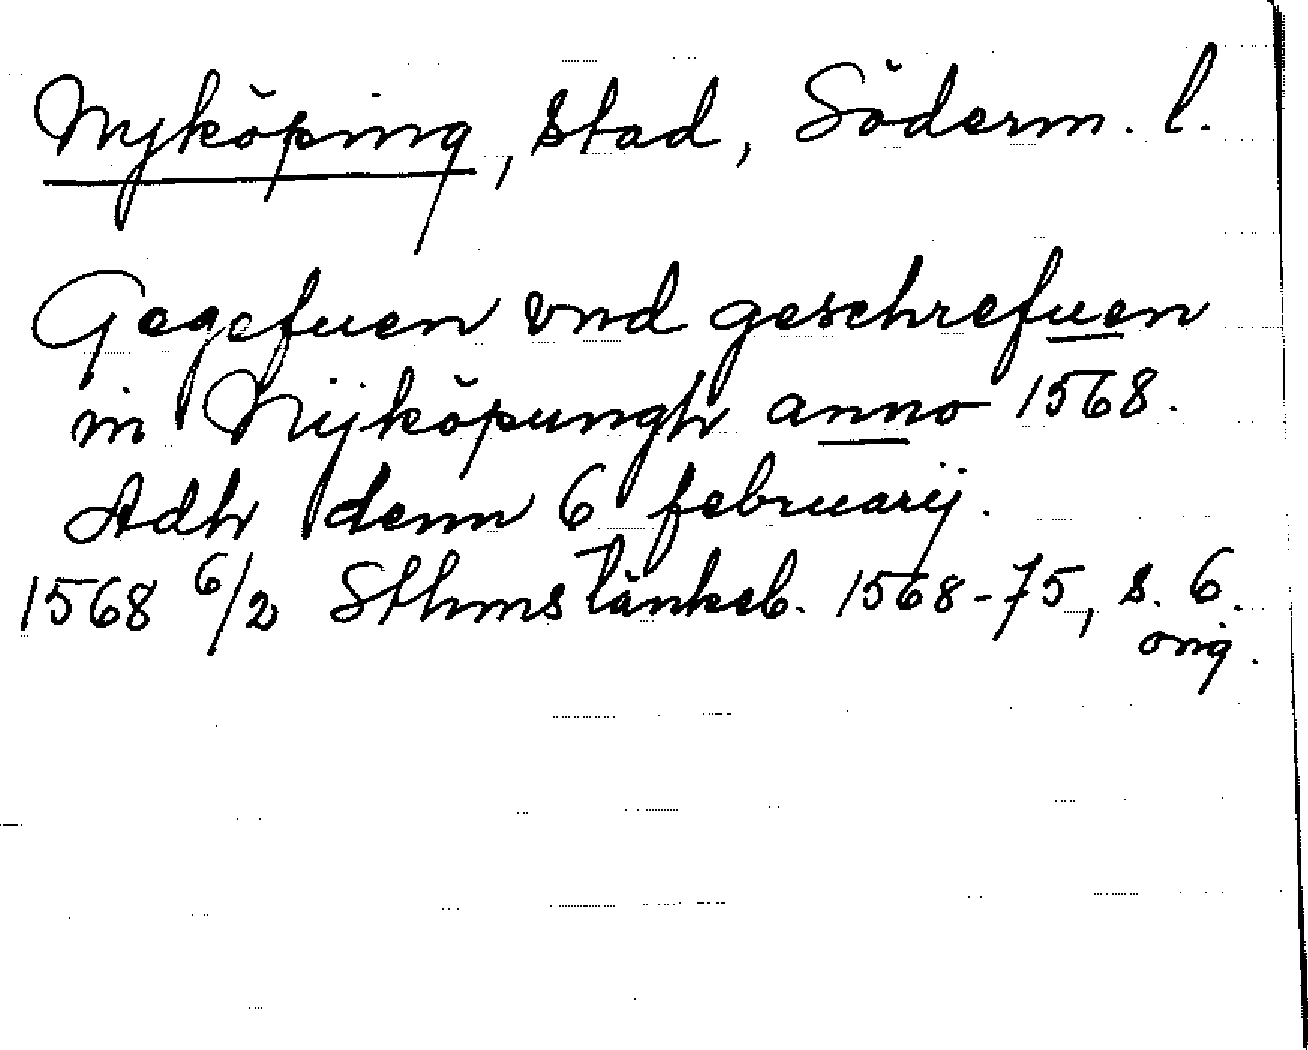 Nyköping, stad, Söderm. l.
Gegefuen vnd geschrefuen
in Nijköpungh anno 1568.
Adh denn 6 februarij.
1568 6/2 Sthms tänkeb. 1568-75, s. 6.
orig.